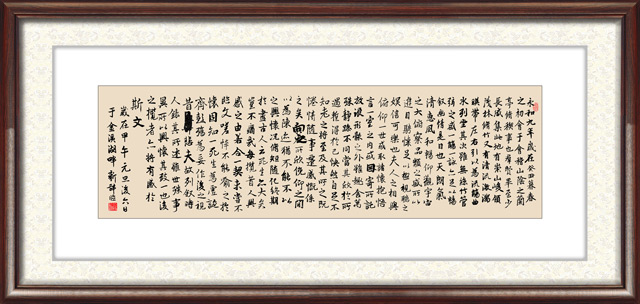 永和九年歲在癸丑暮春
之初會于會稽山陰之蘭
亭修稧事也群賢畢至少
長咸集此地有崇山峻領
茂林修竹又有清流激湍
暎帶左右引以為流觴曲
水列坐其次雖無絲竹管
弦之盛一觴一詠亦足以暢
叙幽情是日也天朗氣
清惠風和暢仰觀宇宙
之大俯察品類之盛所以
遊目騁懷足以極視聽之
娛信可樂也夫人之相與
俯仰一世或取諸懷抱悟
言一室之內或因寄所託
放浪形骸之外雖趣舍萬
殊靜躁不同當其欣於所
遇暫得於己快然自足不
知老之將至及其所之既
惓情隨事遷感慨係
之矣向之所欣俛仰之間
以為陳迹猶不能不以
之興懷況脩短隨化終期
於盡古人云死生亦大矣
豈不痛哉每攬昔人興
感之由若合一契未嘗不
臨文嗟悼不能喻之於
懷固知一死生為虛誕
齊彭殤為妄作後之視
昔悲夫故列敘時
人錄其所述雖世殊事
異所以興懷其致一也後
之攬者亦將有感於
斯文
歲在甲午元旦後六日
于金溪湖畔